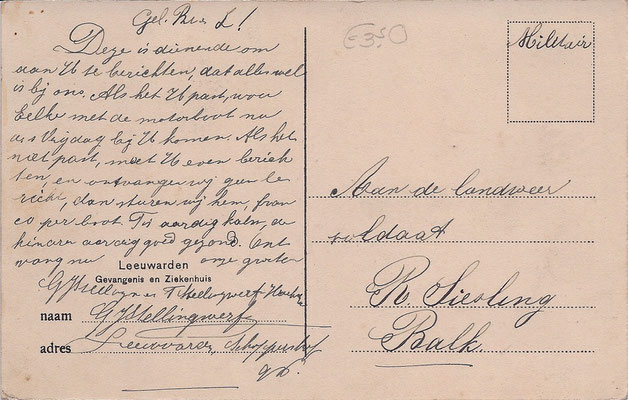 Gel. Br. en Z!
Deze is dienende om
aan U te berichten, dat alles wel
is bij ons. Als het U past, wou
Eelke met de motorboot nu
a.s Vrijdag bij U komen. Als het
niet past, moet U even berich
ten, en ontvangen wij geen be
richt, dan sturen wij hem, fran
co per boot. 't Is aardig kalm, de
kinderen aardig goed gezond. Ont
vang nu onze groeten
Leeuwarden
Gevangenis en Ziekenhuis
naam G Stellingwerf
adres Leeuwarden,
Militair
£350
Aan de landweer
soldaat
R. Siesling
Balk.